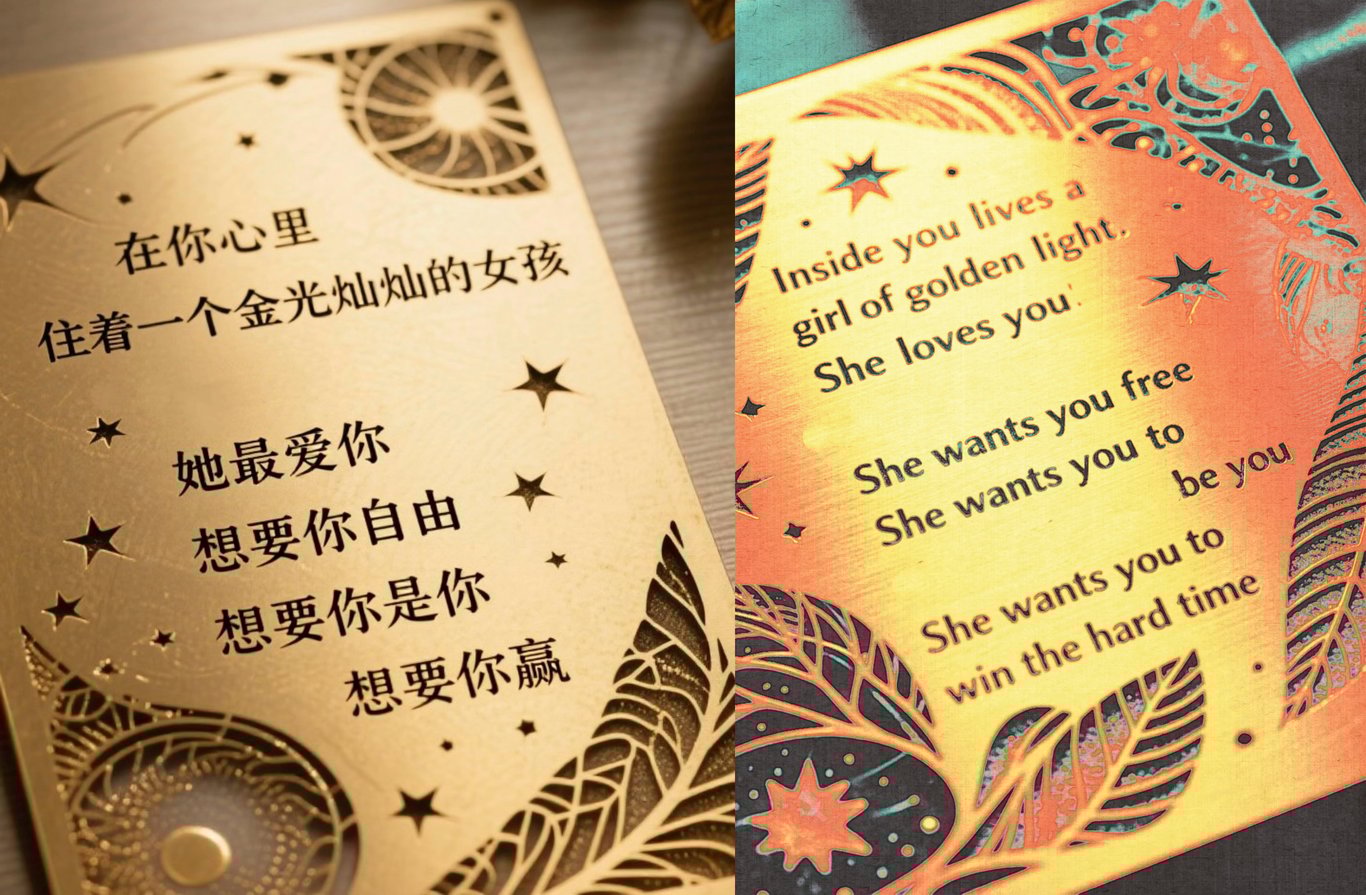 在你心里
住着一个金光灿灿的女孩
她最爱你
想要你自由
想要你是你
想要你赢
Inside you lives a
girl of golden light.
She loves you
She wants you free
She wants you to
be you
She wants you to
win the hard time